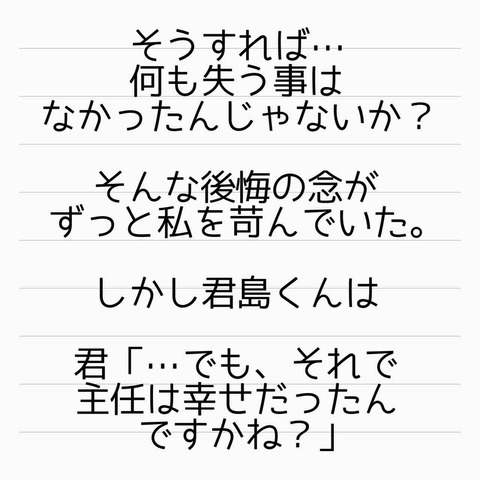 そうすれば…
何も失う事は
なかったんじゃないか？
そんな後悔の念が
ずっと私を苛んでいた。
しかし君島くんは
君「…でも、それで
主任は幸せだったん
ですかね？」